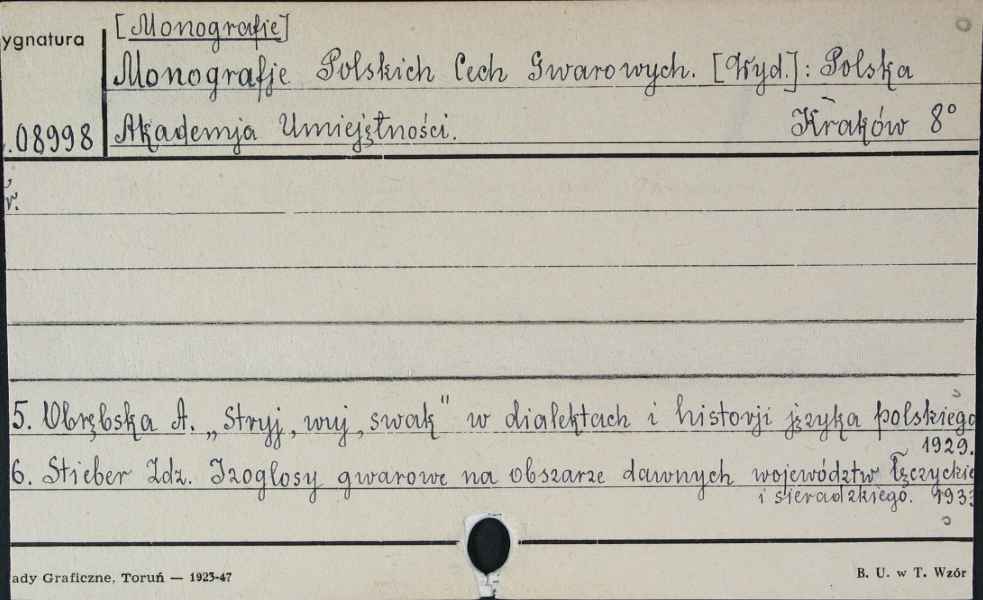 [Monografie]
ygnatura
Monografje Polskich Cech Gwarowych. [Wyd.]: Polska
.08998 Akademja Umiejętności. Kraków 8°
r.
5. Obrębska A. „Stryj, wuj, swak" w dialektach i historji języka polskiego
1929.
6. Stieber Zdz. Izoglosy gwarowe na obszarze dawnych województw Łęczyckie
i sieradzkiego. 1933
ady Graficzne, Toruń — 1923-47 B. U. w T. Wzór